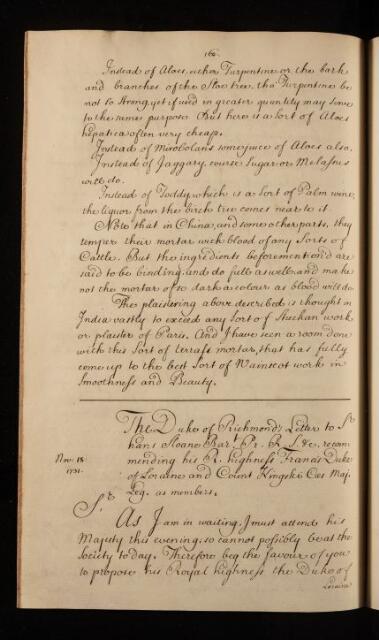 160.
Instead of Aloes, either Turpentine or the bark
and branches of the Sloe tree, tho' Turpentine be
not so strong, yet if used in greater quantity may serve
to the same purpose. But here is a sort of Aloes
hepatica often very cheap.
Instead of Mirobolans some juice of Aloes also.
Instead of Jaggary, course Sugar or Melasses
will do.
Instead of Toddy, which is a sort of Palm wine,
the liquor from the birch tree comes near to it.
Note that in China, and some other parts, they
temper their mortar with blood of any Sorts of
Cattle. But the ingredients beforemention'd are
said to be binding, and do full as well, and make
not the mortar of so dark a colour as blood will do.
The plaistering above described is thought in
India vastly to exceed any sort of Stuchan work
or plaister of Paris. And I have seen a room done
with this sort of terrass mortar, that has fully
come up to the best Sort of Wainscot work in
Smoothness and Beauty.
The Duke of Richmond's Letter to Sr
hans Sloane Bart. Pr. R. S. &c. recom
Nov. 18.
mending his R. highness Francis Duke
1731.
of Loraine and Count Kingski Cæs Maj.
Leg. as members.
Sr
As I am in waiting, I must attend his
Majesty this evening, so cannot possibly be at the
Society to Day. Therefore beg the favour of you
to propose his Royal highness the Duke of
Loraine